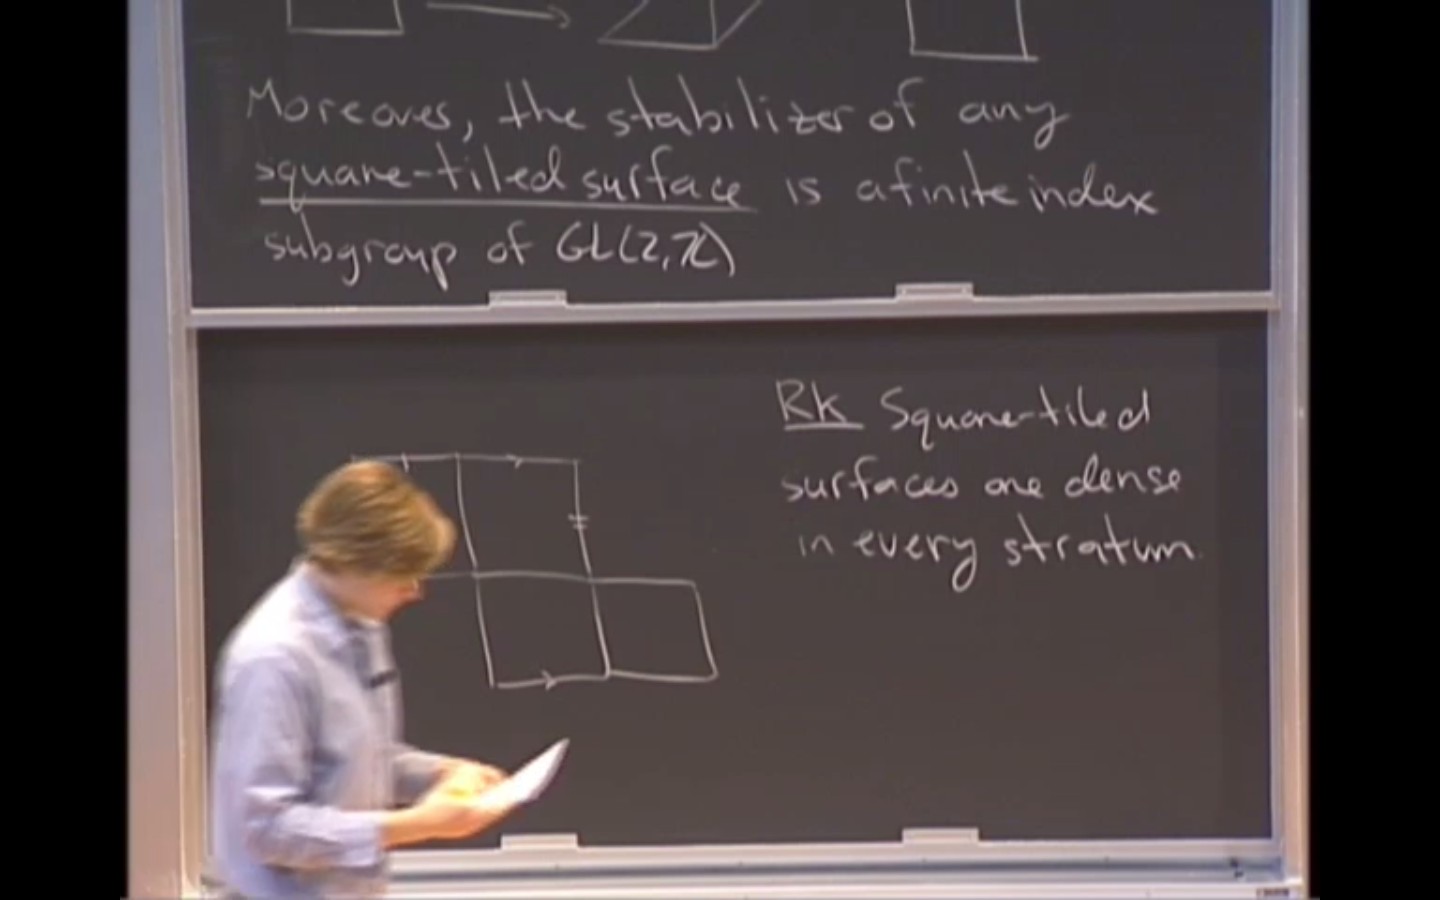 Moreover, the stabilizer of any
square-tiled surface is a finite index
subgroup of GL(2,ℤ)
Rk Square-tiled
surfaces are dense
in every stratum